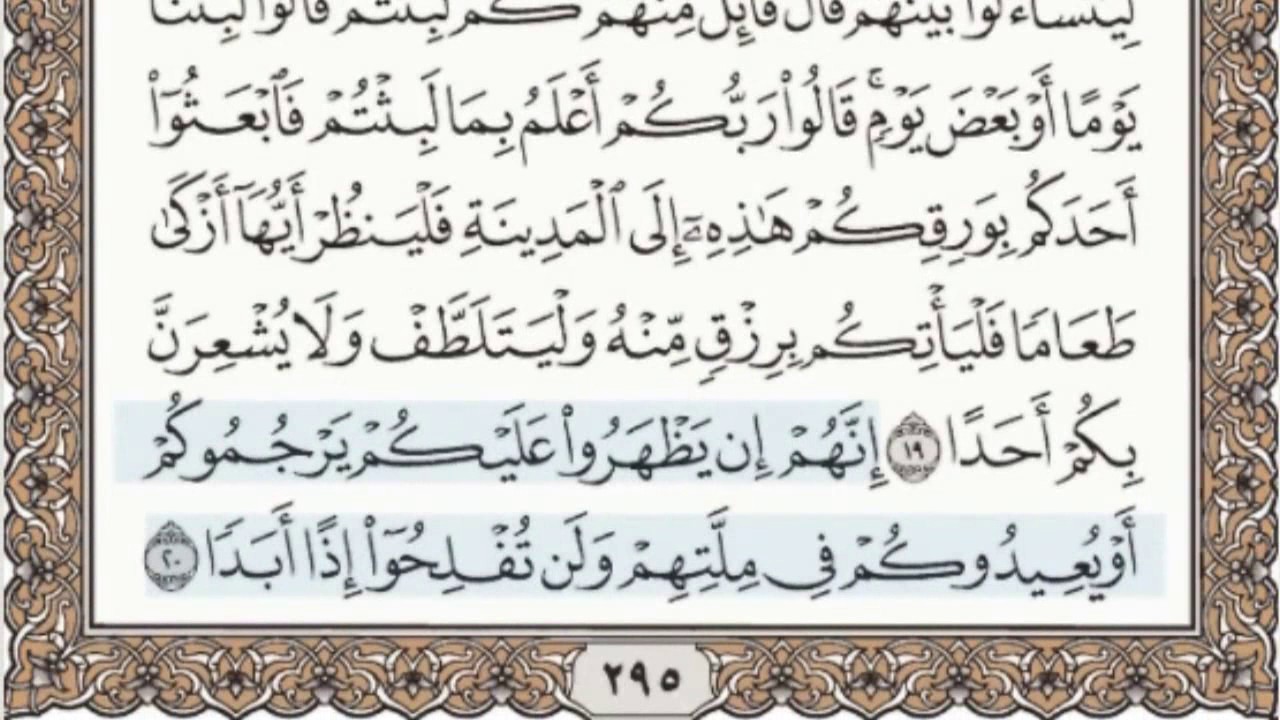 لِيَتَسَآءَلُوا۟ بَيْنَهُمْ قَالَ قَآئِلٌ مِّنْهُمْ كَمْ لَبِثْتُمْ قَالُوا۟ لَبِثْنَا
يَوْمًا أَوْ بَعْضَ يَوْمٍ ۚ قَالُوا۟ رَبُّكُمْ أَعْلَمُ بِمَا لَبِثْتُمْ فَٱبْعَثُوٓا۟
أَحَدَكُم بِوَرِقِكُمْ هَٰذِهِۦٓ إِلَى ٱلْمَدِينَةِ فَلْيَنظُرْ أَيُّهَآ أَزْكَىٰ
طَعَامًا فَلْيَأْتِكُم بِرِزْقٍ مِّنْهُ وَلْيَتَلَطَّفْ وَلَا يُشْعِرَنَّ
بِكُمْ أَحَدًا ١٩ إِنَّهُمْ إِن يَظْهَرُوا۟ عَلَيْكُمْ يَرْجُمُوكُمْ
أَوْ يُعِيدُوكُمْ فِى مِلَّتِهِمْ وَلَن تُفْلِحُوٓا۟ إِذًا أَبَدًا ٢٠
٢٩٥